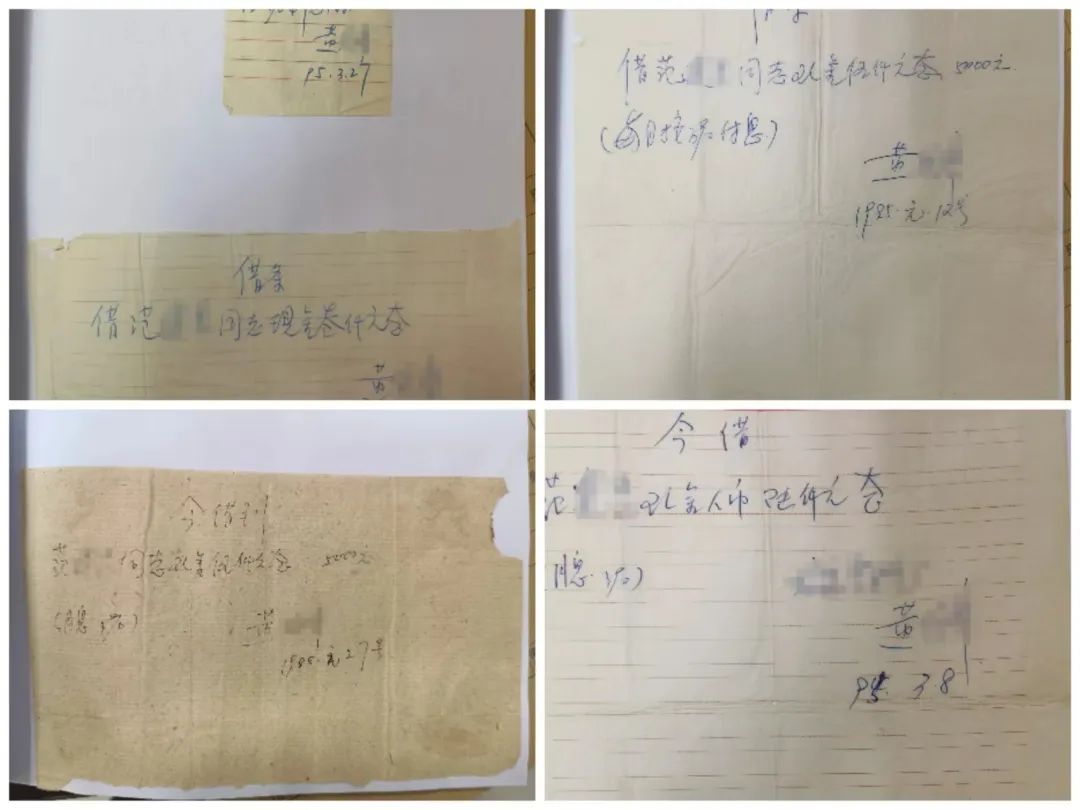 黄
95.3.27
借条
借范 同志现金叁仟元整
黄
借范 同志现金伍仟元整 5000元
(每月按3%付息)
黄
1995.元.12号
今借到
范 同志现金伍仟元整 5000元
(月息3%)
黄
1995.元.27号
今借
范 现金人币 仟元整
月息3%)
黄
95.3.8